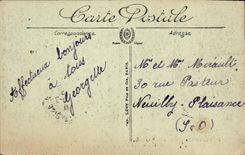 Carte Postale
Correspondance
Adresse
Affectueux bonjours
à tous
Georgette
Mr et Me Mérault
30 rue Pasteur
Neuilly Plaisance
(S-O)